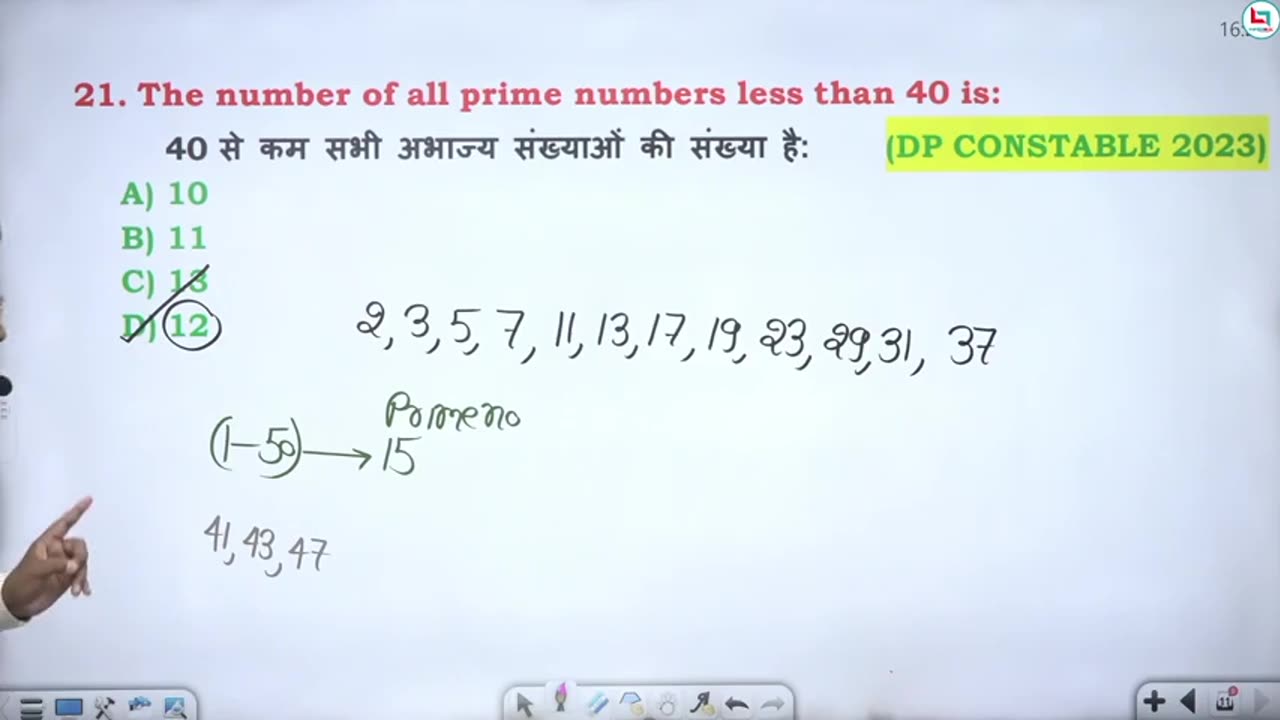 16:
21. The number of all prime numbers less than 40 is:
40 से कम सभी अभाज्य संख्याओं की संख्या है:
(DP CONSTABLE 2023)
A) 10
B) 11
C) 13
D) 12
2, 3, 5, 7, 11, 13, 17, 19, 23, 29, 31, 37
Prime no
(1-50) → 15
41, 43, 47
11